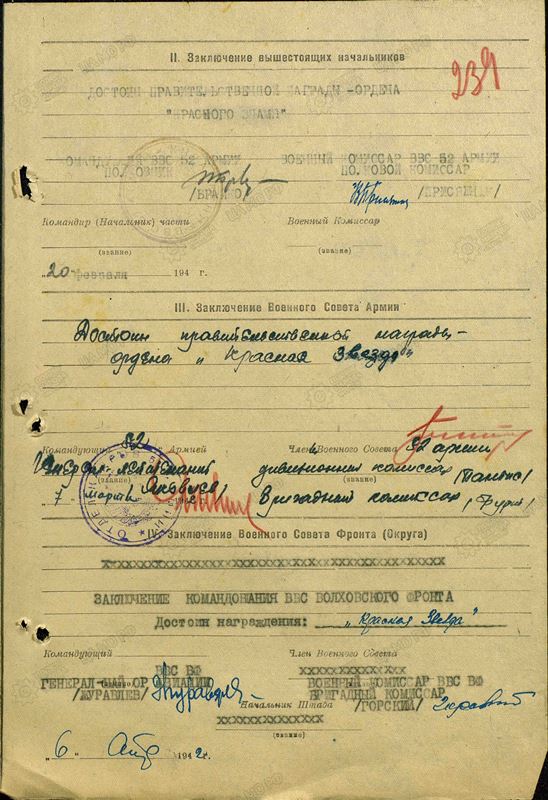 II. Заключение вышестоящих начальников
239
ДОСТОИН ПРАВИТЕЛЬСТВЕННОЙ НАГРАДЫ -ОРДЕНА
"КРАСНОГО ЗНАМЯ"
КОМАНДУЮЩИЙ ВВС 52 АРМИИ ВОЕННЫЙ КОМИССАР ВВС 52 АРМИИ
ПОЛКОВНИК ПОЛКОВОЙ КОМИССАР
Командир (Начальник) части Военный Комиссар
(звание) (звание)
„20 февраля 194 г.
III. Заключение Военного Совета Армии
Достоин правительственной награды-
ордена „Красная Звезда"
Командующий 52 Армией Член Военного Совета 52 армии
Генерал-лейтенант дивизионный комиссар
(звание) (звание)
7 марта Яковлев/ Бригадный комиссар
IV. Заключение Военного Совета Фронта (Округа)
ХХХХХХХХХХХХХХХХХХХХХХХХХХХХХХХХХХХХ
ЗАКЛЮЧЕНИЕ КОМАНДОВАНИЯ ВВС ВОЛХОВСКОГО ФРОНТА
Достоин награждения: „Красная Звезда"
Командующий Член Военного Совета
ВВС ВФ ХХХХХХХХХХХХ
ГЕНЕРАЛ-МАЙОР АВИАЦИИ ВОЕННЫЙ КОМИССАР ВВС ВФ
/ЖУРАВЛЕВ/ БРИГАДНЫЙ КОМИССАР
Начальник Штаба /ГОРСКИЙ/
ХХХХХХХХХХХХ
(звание)
„6" Апр 1942 г.